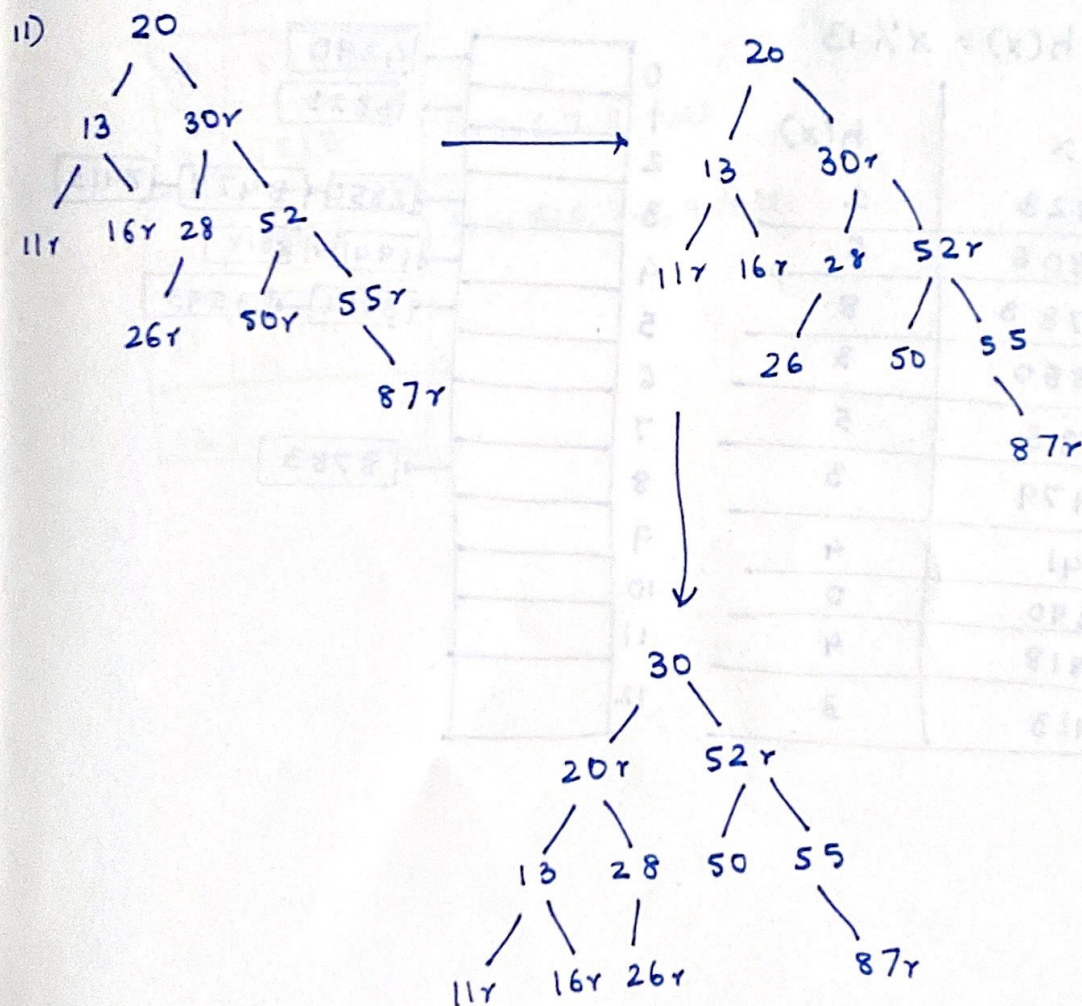 11)
20
13 30r
11r 16r 28 52
26r 50r 55r
87r
20
13 30r
11r 16r 28 52r
26 50 55
87r
30
20r 52r
13 28 50 55
11r 16r 26r 87r